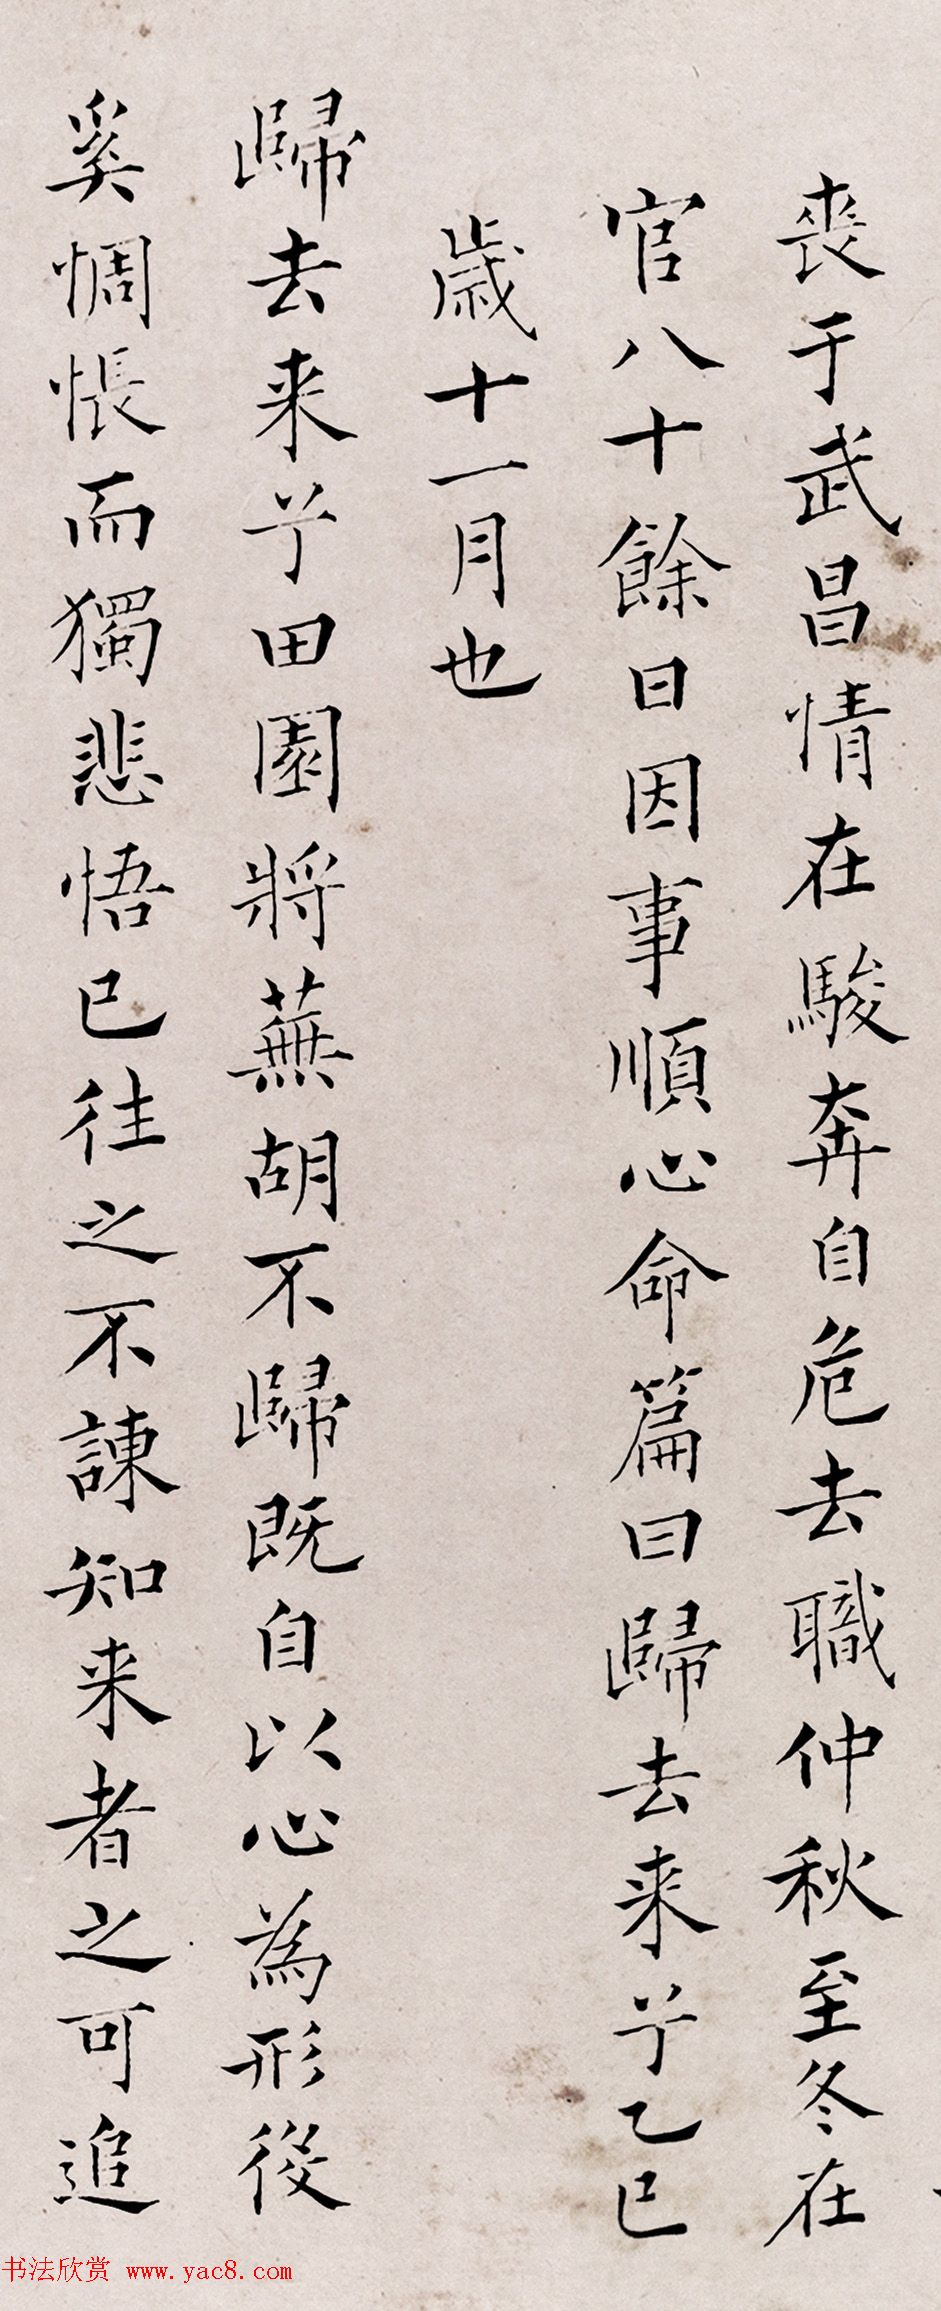 喪于武昌情在駿奔自危去職仲秋至冬在
官八十餘日因事順心命篇曰歸去来兮乙巳
歳十一月也
歸去来兮田園將蕪胡不歸既自以心為形役
奚惆悵而獨悲悟已往之不諫知来者之可追
书法欣赏 www.yac8.com